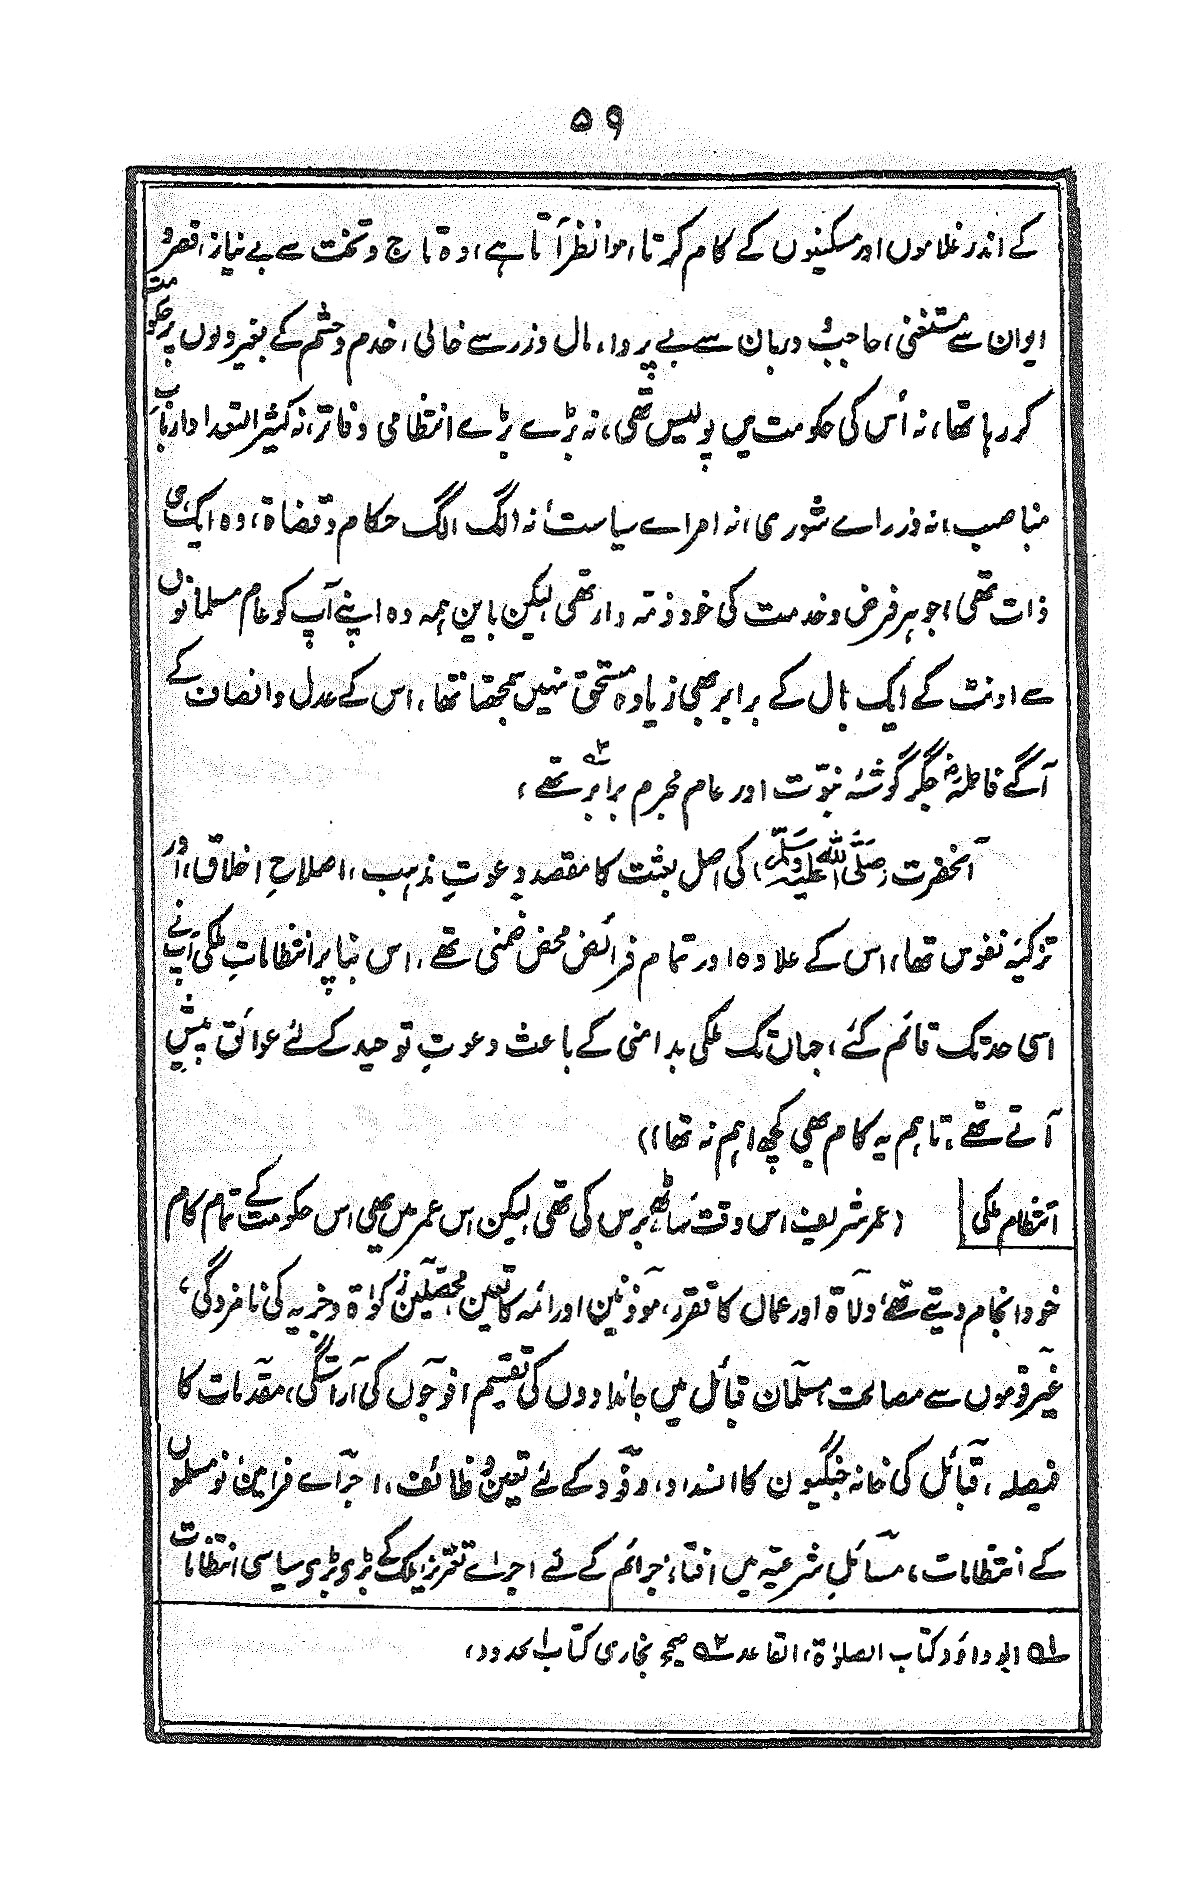 ۵۹
کے اندر غلاموں اور مسکینوں کے کام کرتا ہوا نظر آتا ہے، وہ تاج و تخت سے بے نیاز، قصر و
ایوان سے مستغنی، حاجب و دربان سے بے پروا، مال و زر سے خالی، خدم و حشم کے بغیر دلوں پر حکومت
کر رہا تھا، نہ اُس کی حکومت میں پولیس تھی، نہ بڑے بڑے انتظامی دفاتر، نہ کثیر التعداد اربابِ
مناصب، نہ وزراے شوریٰ، نہ امراے سیاست، نہ الگ الگ حکام و قضاۃ، وہ ایک ہی
ذات تھی، جو ہر فرض و خدمت کی خود ذمہ دار تھی، لیکن باین ہمہ وہ اپنے آپ کو عام مسلمانوں
سے اونٹ کے ایک بال کے برابر بھی زیادہ مستحق نہیں سمجھتا تھا، اس کے عدل و انصاف کے
آگے فاطمہؓ جگر گوشۂ نبوّت اور عام مجرم برابر تھے ۲؎،
آنحضرت (صَلَّی اللہُ عَلَیْہِ وَسَلَّم) کی اصل بعثت کا مقصد دعوتِ مذہب، اصلاحِ اخلاق، اور
تزکیۂ نفوس تھا، اس کے علاوہ اور تمام فرائض محض ضمنی تھے، اس بنا پر انتظاماتِ ملکی آپ نے
اسی حد تک قائم کئے، جہاں تک ملکی بد امنی کے باعث دعوتِ توحید کے لئے عوائق پیش
آتے تھے، تاہم یہ کام بھی کچھ اہم نہ تھا،)
انتظام ملکی (عمر شریف اس وقت ساٹھ برس کی تھی، لیکن اس عمر میں بھی اس حکومت کے تمام کام
خود انجام دیتے تھے، ولاۃ اور عمال کا تقرر، موذنین اور ائمہ کا تعین، محصلین زکوٰۃ و جزیہ کی نامزدگی،
غیر قوموں سے مصالحت، مسلمان قبائل میں جائدادوں کی تقسیم، افواجوں کی آراستگی، مقدمات کا
فیصلہ، قبائل کی خانہ جنگیوں کا انسداد، وفود کے لئے تعینِ وظائف، اجراے فرامین، نو مسلموں
کے انتظامات، مسائلِ شرعیہ میں افتا، جرائم کے لئے اجراے تعزیر، ملک کے بڑی بڑی سیاسی انتظامات
۱؎ ابو داؤد کتاب الصلوٰۃ، القاعد ۲؎ صحیح بخاری کتاب الحدود،